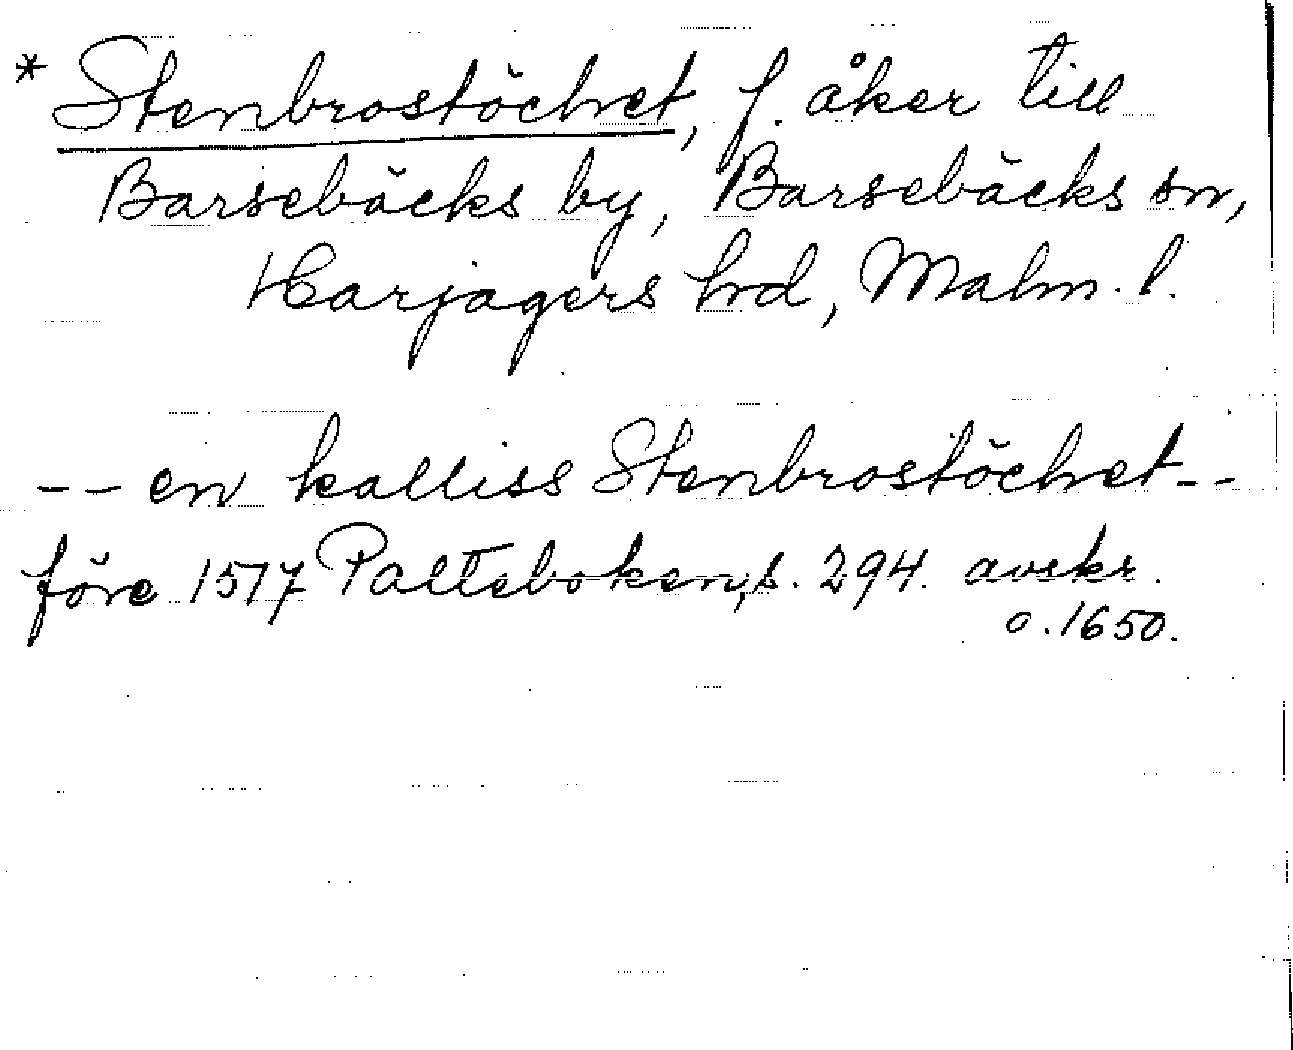 * Stenbrostöchet, f. åker till
Barsebäcks by, Barsebäcks sn,
Harjagers hrd, Malm. l.
-- en kalliss Stenbrostöchet --
före 1517 Palteboken, s. 294. avskr.
o. 1650.